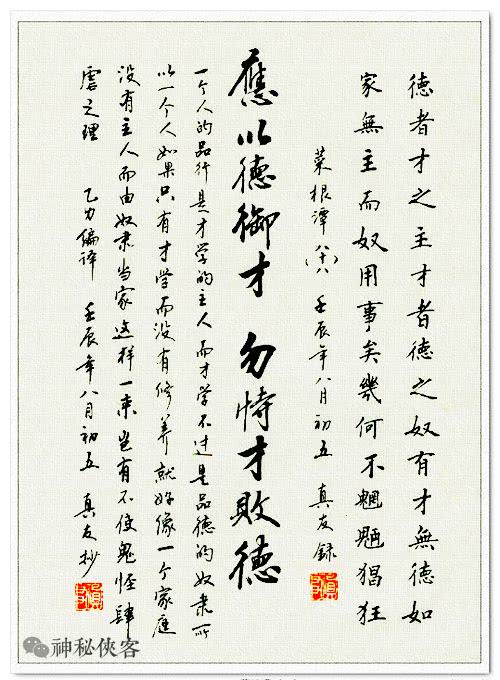 德者才之主才者德之奴有才無德如
家無主而奴用事矣幾何不魍魎猖狂
菜根譚(八十八) 壬辰年八月初五 真友錄
應以德御才 勿恃才敗德
一个人的品行是才学的主人而才学不过是品德的奴隶所
以一个人如果只有才学而没有修养就好像一个家庭
没有主人而由奴隶当家这样一来岂有不使鬼怪肆
虐之理 乙力偏译 壬辰年八月初五 真友抄
神秘俠客